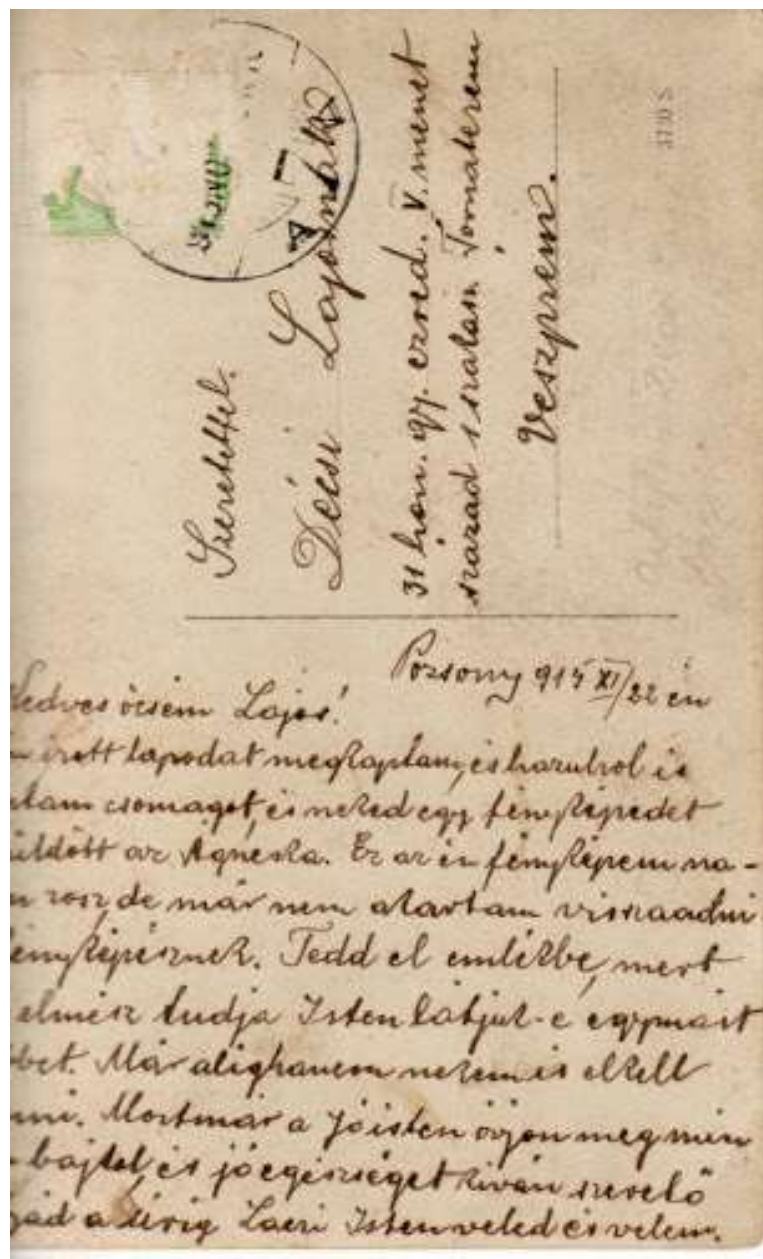 Szeretettel.
Décsi Lajosnak
31 hon. gy. ezred. V. menet
szazad 1 szalasz Tornaterem
Veszprem.
Pozsony 915 XI/22 én
Kedves öcsém Lajos!
irott lapodat megkaptam, és hazulrol is
csomagot, és neked egy fényképedet
küldött az Ágneska. Ez az én fényképem na-
rosz, de már nem akartam visszaadni
fényképésznek. Tedd el emlékbe, mert
elmész tudja Isten látjuk-e egymást
Már alighanem nekem is elkell
Mostmár a Jóisten óvjon meg min
bajtol, és jóegészséget kiván szerető
a sírig Laczi Isten veled és velem.